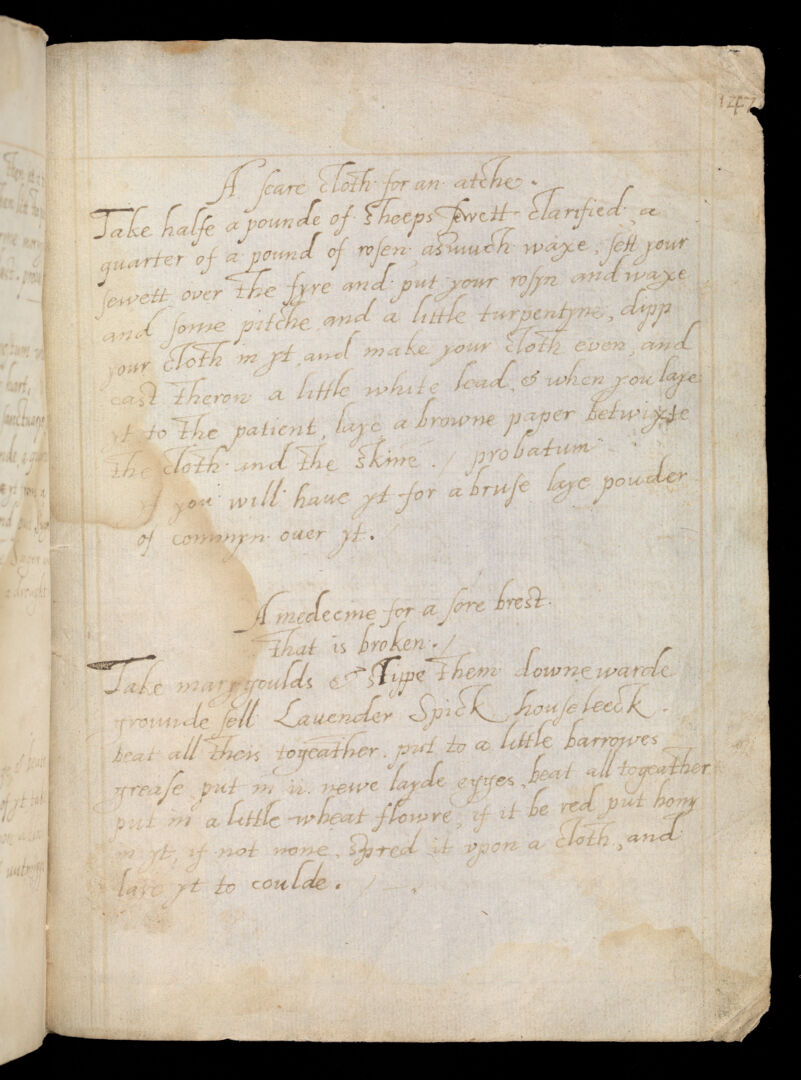 147
A seare cloth for an atche.
Take halfe a pounde of sheeps sewett clarified a
quarter of a pound of rosen asmuch waxe, sett your
sewett over the fyre and put your rosyn and waxe
and some pitche and a little turpentyne, dipp
your cloth in yt and make your cloth even, and
cast theron a little white lead & when you laye
yt to the patient, laye a browne paper betwixte
the cloth and the skine ./ probatum
if you will have yt for a bruse laye pouder
of commyn over yt.
A medecine for a sore brest.
that is broken./
Take marygoulds & stype them downewarde
grounde sell Lavender Spick houseleeck.
beat all theis togeather. put to a little barrowes
grease put in ii. newe layde egges, beat all togeather
put in a little wheat flowre, if it be red put hony
in yt, if not none. Spred it vpon a cloth, and
laye yt to coulde.